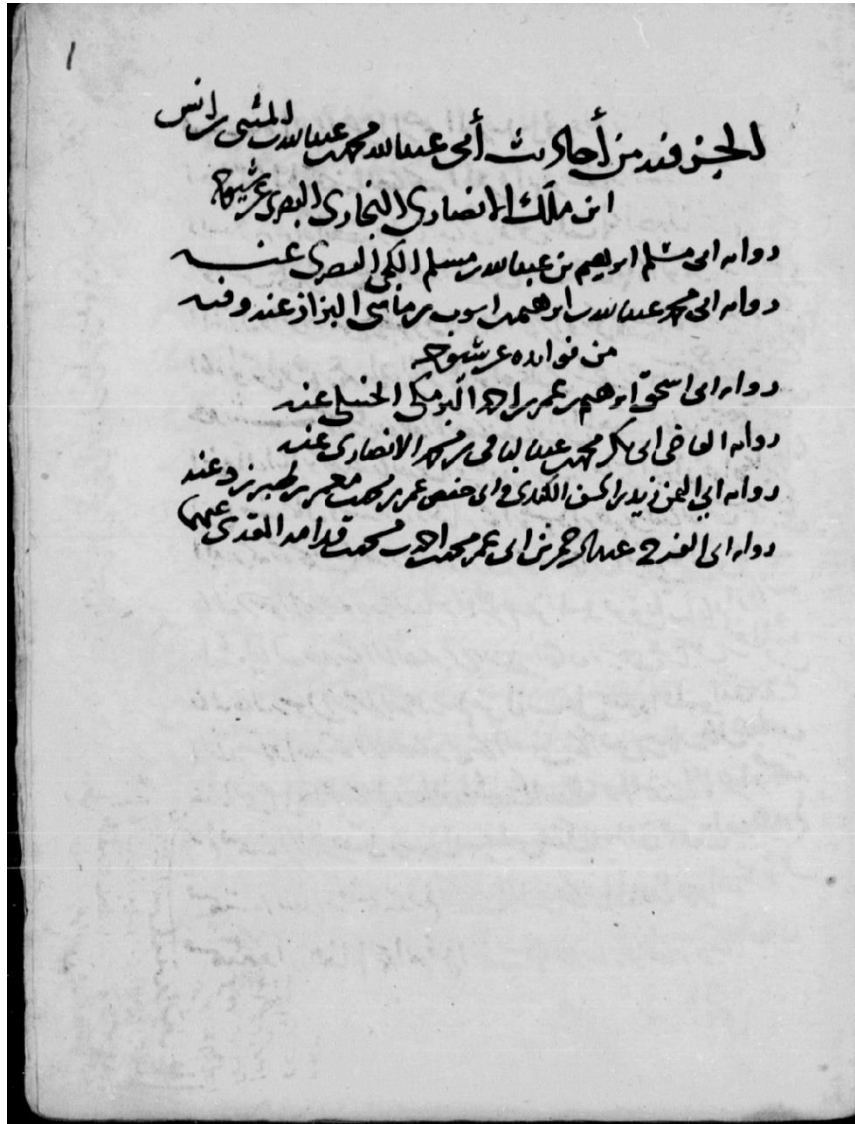 1
الجزء فيه من أحاديث أبي عبد الله محمد بن عبد الله بن المثنى بن أنس
ابن ملك الانصاري النجاري البصري عن شيوخه
رواية ابي مسلم ابرهيم بن عبد الله بن مسلم الكجي البصري عنه
رواية ابي محمد عبد الله بن ابرهيم بن ايوب بن ماسي البزاز عنه وفيه
من فوايده عن شيوخه
رواية ابي اسحق ابرهيم بن عمر بن احمد البرمكي الحنبلي عنه
رواية القاضي ابي بكر محمد بن عبد الباقي بن محمد الانصاري عنه
رواية ابي اليمن زيد بن الحسن الكندي وابي حفص عمر بن محمد بن معمر بن طبرزد عنه
رواية ابي الفرج عبد الرحمن بن ابي عمر محمد بن احمد بن محمد بن قدامة المقدسي عنهما